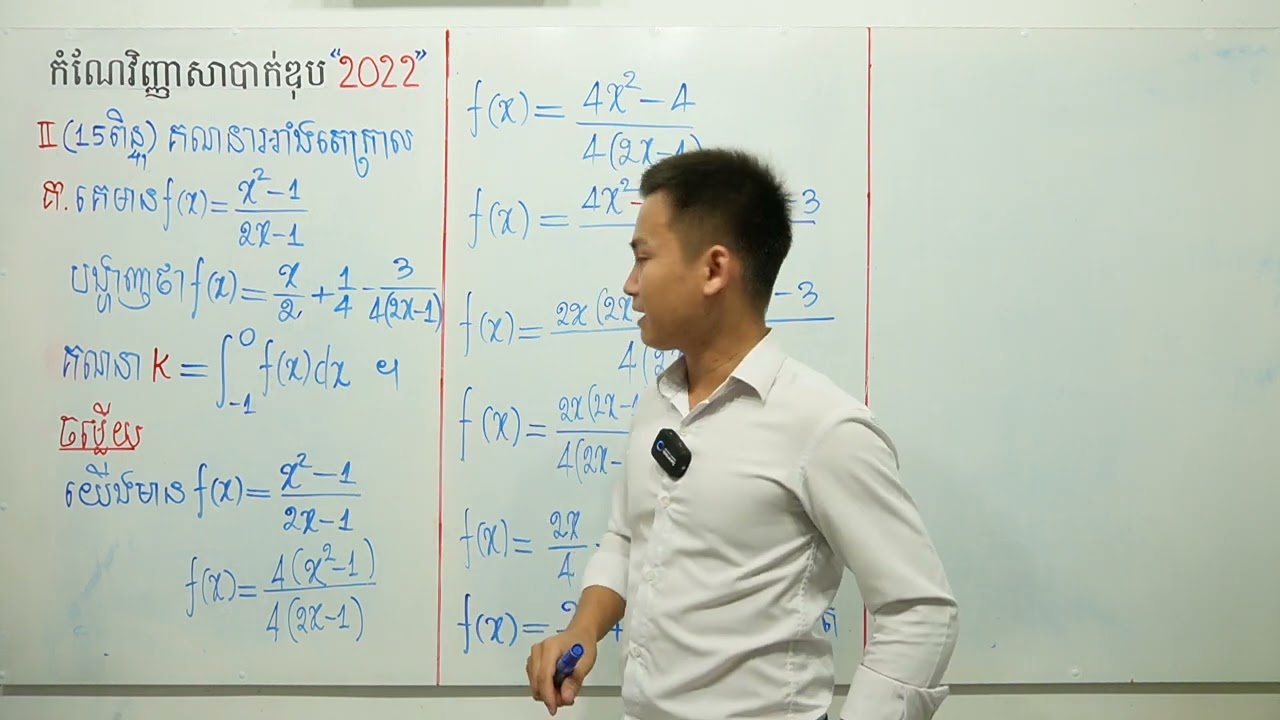 កំណែវិញ្ញាសាបាក់ឌុប "2022"
II (15ពិន្ទុ) គណនាអាំងតេក្រាល
គ. គេមាន f(x) = (x² − 1)/(2x − 1)
បង្ហាញថា f(x) = x/2 + 1/4 − 3/(4(2x−1))
គណនា K = ∫₋₁⁰ f(x)dx ។
ចម្លើយ
យើងមាន f(x) = (x² − 1)/(2x − 1)
f(x) = 4(x² − 1)/4(2x − 1)
f(x) = (4x² − 4)/4(2x − 1)
f(x) = 4x² − − 3
f(x) = 2x(2x − 3 / 4(
f(x) = 2x(2x − 1 / 4(2x −
f(x) = 2x/4
f(x) = +